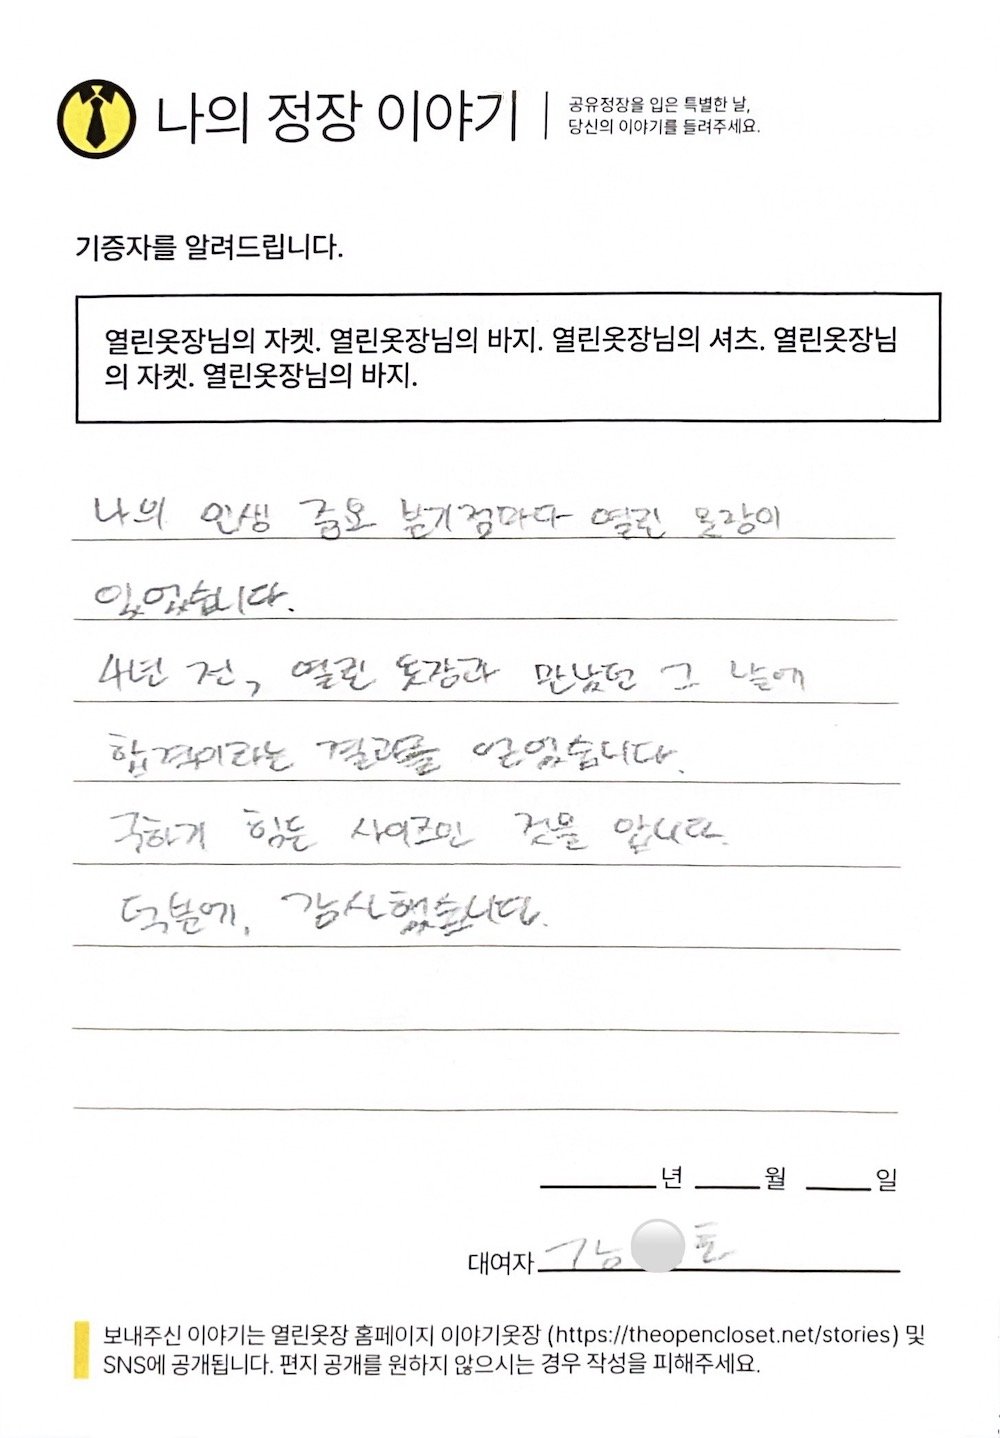 나의 정장 이야기
공유정장을 입은 특별한 날,
당신의 이야기를 들려주세요.
기증자를 알려드립니다.
열린옷장님의 자켓. 열린옷장님의 바지. 열린옷장님의 셔츠. 열린옷장님
의 자켓. 열린옷장님의 바지.
나의 인생 중요 분기점마다 열린 옷장이
있었습니다.
4년 전, 열린 옷장과 만났던 그 날에
합격이라는 결과를 얻었습니다.
구하기 힘든 사이즈인 것을 압니다.
덕분에, 감사했습니다.
년 월 일
대여자
보내주신 이야기는 열린옷장 홈페이지 이야기옷장 (https://theopencloset.net/stories) 및
SNS에 공개됩니다. 편지 공개를 원하지 않으시는 경우 작성을 피해주세요.